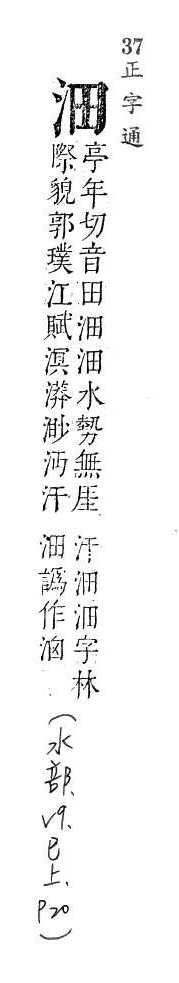 37正字通
沺
亭年切音田沺沺水勢無厓
際貌郭璞江賦溟漭渺沔汗
汗沺沺字林
沺譌作
(水部、V9、巳上、P20)